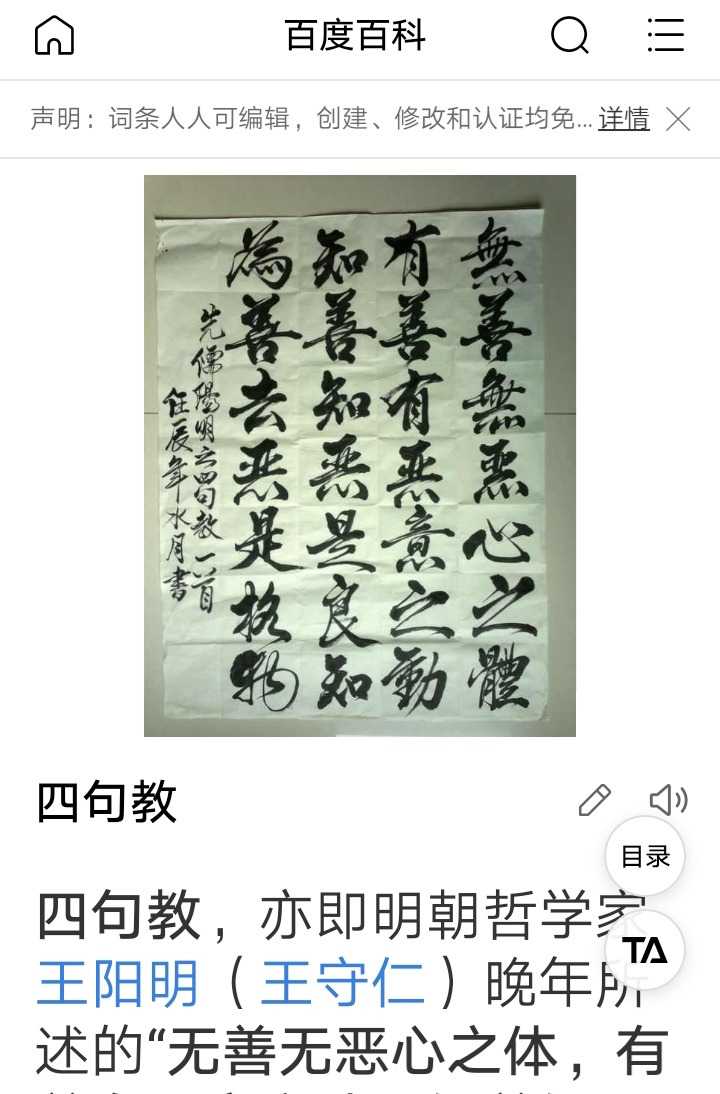 百度百科
声明：词条人人可编辑，创建、修改和认证均免... 详情
無善無恶心之體
有善有恶意之動
知善知恶是良知
為善去恶是格物
先儒陽明之四句教一首
任辰年水月書
四句教
目录
四句教，亦即明朝哲学家
TA
王阳明（王守仁）晚年所
述的“无善无恶心之体，有